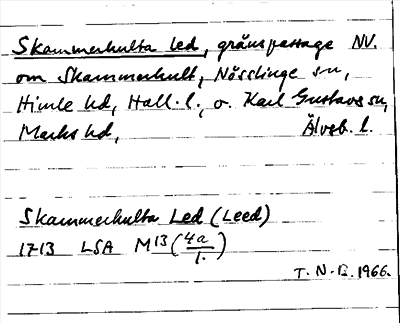 Skammerhulta led, gränspassage NV.
om Skammerhult, Nösslinge sn,
Himle hd, Hall. l., o. Karl Gustavs sn,
Marks hd, Älvsb. l.
Skammerhulta Led (Leed)
1713 LSA M13 (4a/1.)
T. N-B. 1966.